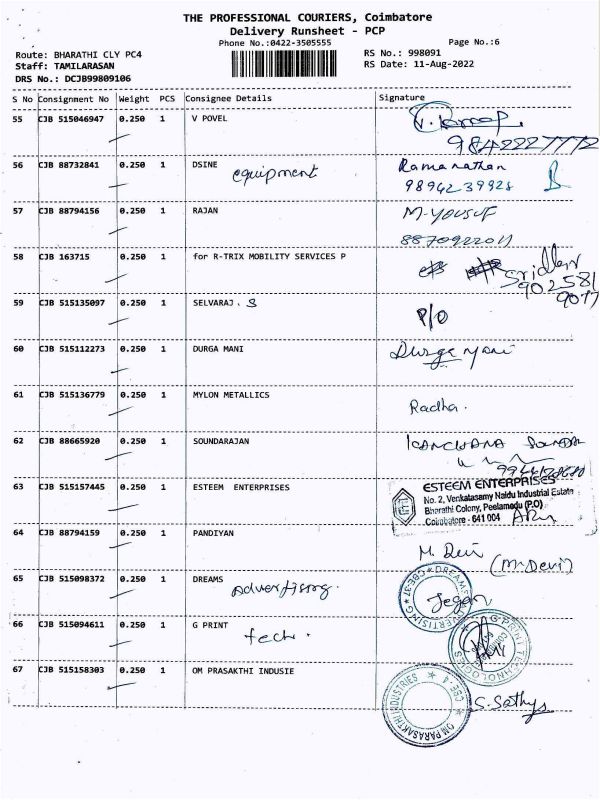 THE PROFESSIONAL COURIERS, Coimbatore
Delivery Runsheet - PCP
Phone No.:0422-3505555
Page No.:6
Route: BHARATHI CLY PC4
RS No.: 998091
Staff: TAMILARASAN
RS Date: 11-Aug-2022
DRS No.: DCJB99809106
S No Consignment No Weight PCS Consignee Details Signature
55 CJB 515046947 0.250 1 V POVEL
9842227772
56 CJB 88732841 0.250 1 DSINE equipment Ramanathan
9894239928
57 CJB 88794156 0.250 1 RAJAN M-YOUSUF
8870922011
58 CJB 163715 0.250 1 for R-TRIX MOBILITY SERVICES P Sridhar
902581
9077
59 CJB 515135097 0.250 1 SELVARAJ . S P/O
60 CJB 515112273 0.250 1 DURGA MANI Durga mani
61 CJB 515136779 0.250 1 MYLON METALLICS Radha.
62 CJB 88665920 0.250 1 SOUNDARAJAN KANCHANA
63 CJB 515157445 0.250 1 ESTEEM ENTERPRISES
ESTEEM ENTERPRISES
No. 2, Venkatasamy Naidu Industrial Estate
Bharathi Colony, Peelamedu (P.O)
Coimbatore - 641 004
64 CJB 88794159 0.250 1 PANDIYAN M. Devi (M.Devi)
65 CJB 515098372 0.250 1 DREAMS advertising. Jegan
DREAMS ADVERTISING ★ CBE-37 ★
66 CJB 515094611 0.250 1 G PRINT tech.
G PRINT TECHNOLOGIES
67 CJB 515158303 0.250 1 OM PRASAKTHI INDUSIE S. Sathya
OM PARASAKTHI INDUSTRIES ★ CBE-4 ★